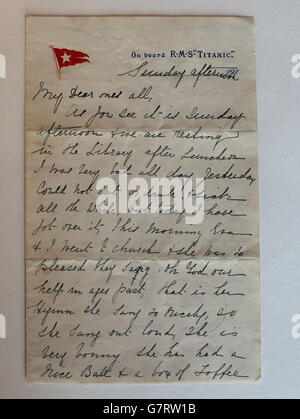 On board R·M·S·"TITANIC."
Sunday afternoon 191
My Dear ones all,
As you see it is Sunday
afternoon & we are resting
in the Library after Luncheon
I was very bad all day Yesterday
Could not eat or drink & sick
all the while but today I have
got over it, This morning Eva
& I went to church & she was so
pleased they Sang Oh God our
help in ages past, that is her
Hymn she Sang so nicely, so
she Sang out loud She is
very bonny She has had a
nice Ball & a box of Toffee
alamy
G7RWT1B